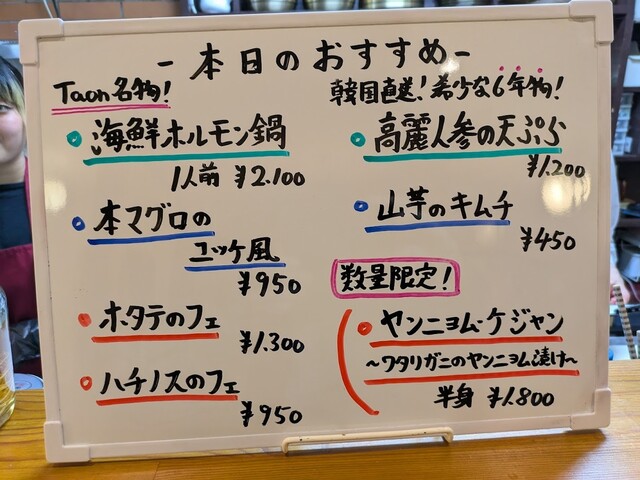 -本日のおすすめ-
Taon名物!
海鮮ホルモン鍋
1人前 ¥2.100
本マグロの
ユッケ風
¥950
ホタテのフェ
¥1.300
ハチノスのフェ
¥950
韓国直送!希少な6年物!
高麗人参の天ぷら
¥1.200
山芋のキムチ
¥450
数量限定!
ヤンニョム・ケジャン
~ワタリガニのヤンニョム漬け~
半身 ¥1.800